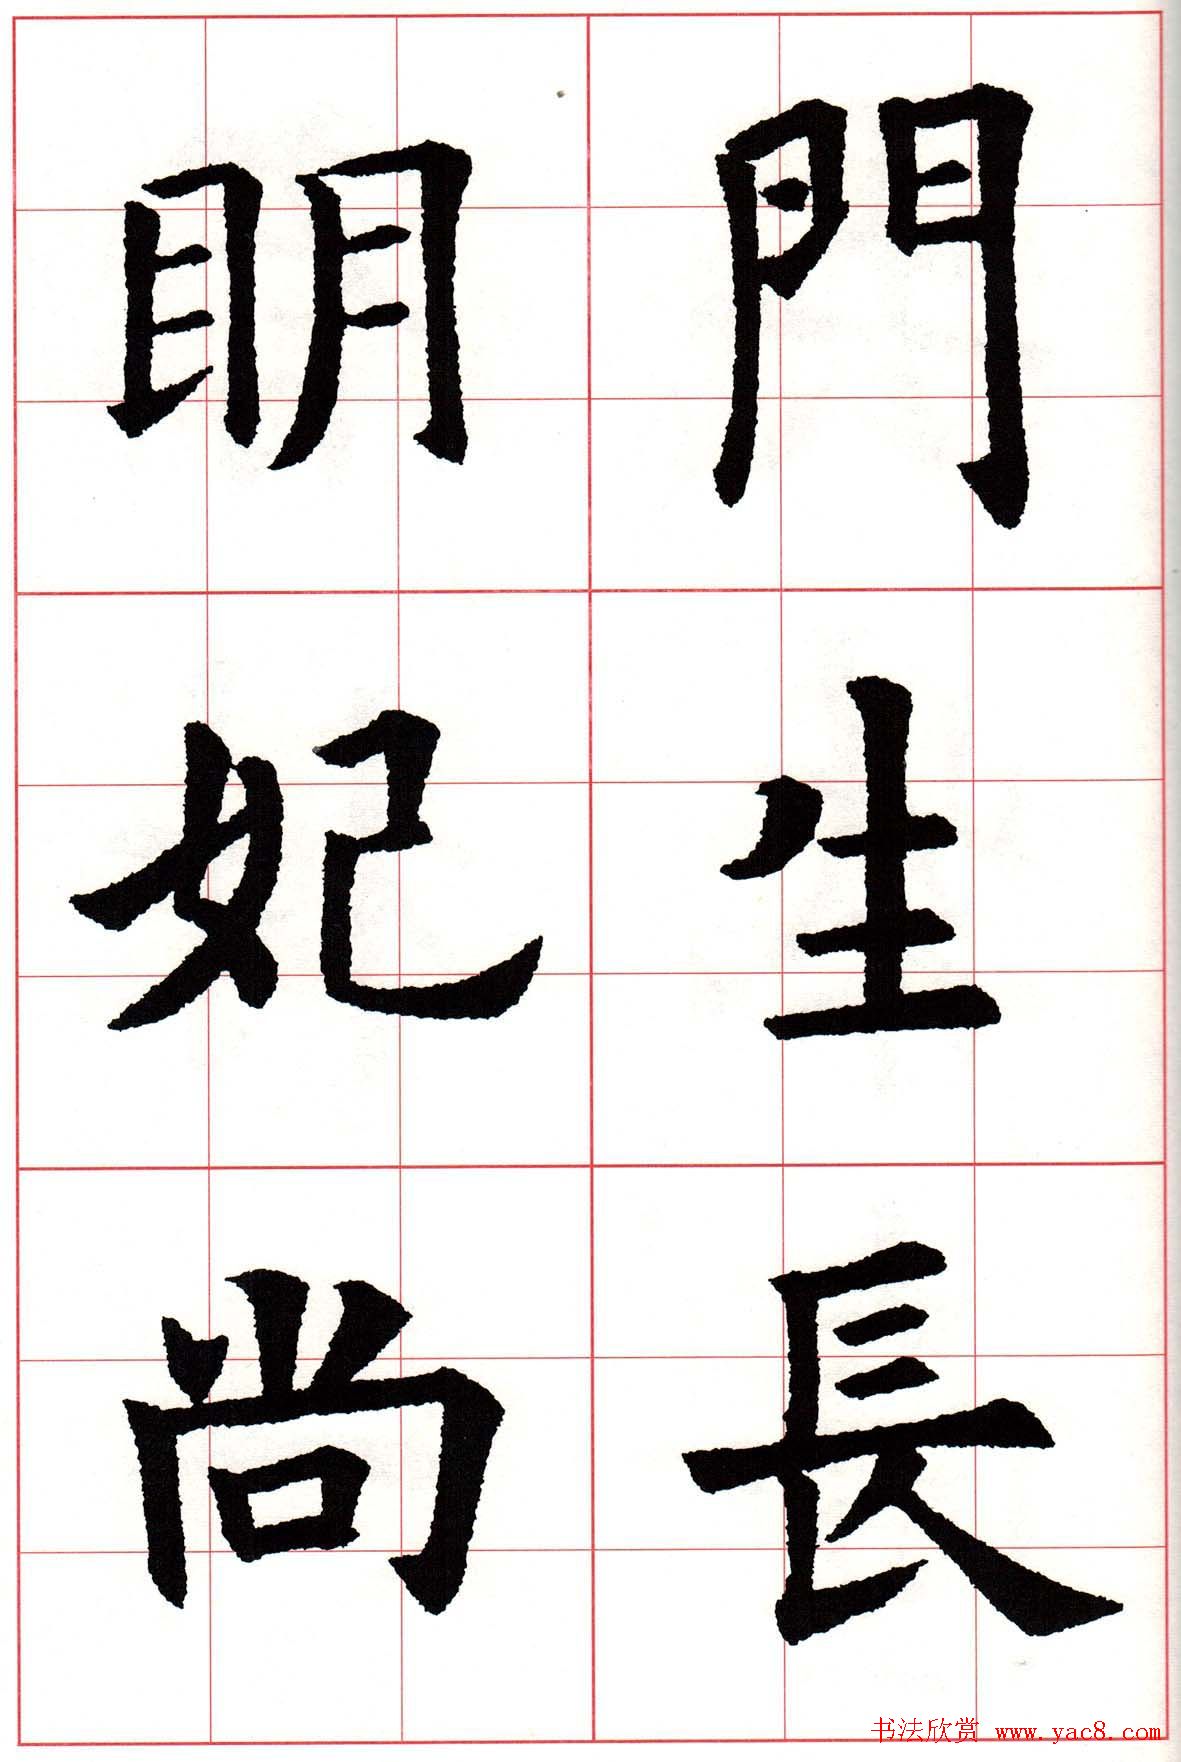 門生長
明妃尚
书法欣赏 www.yac8.com